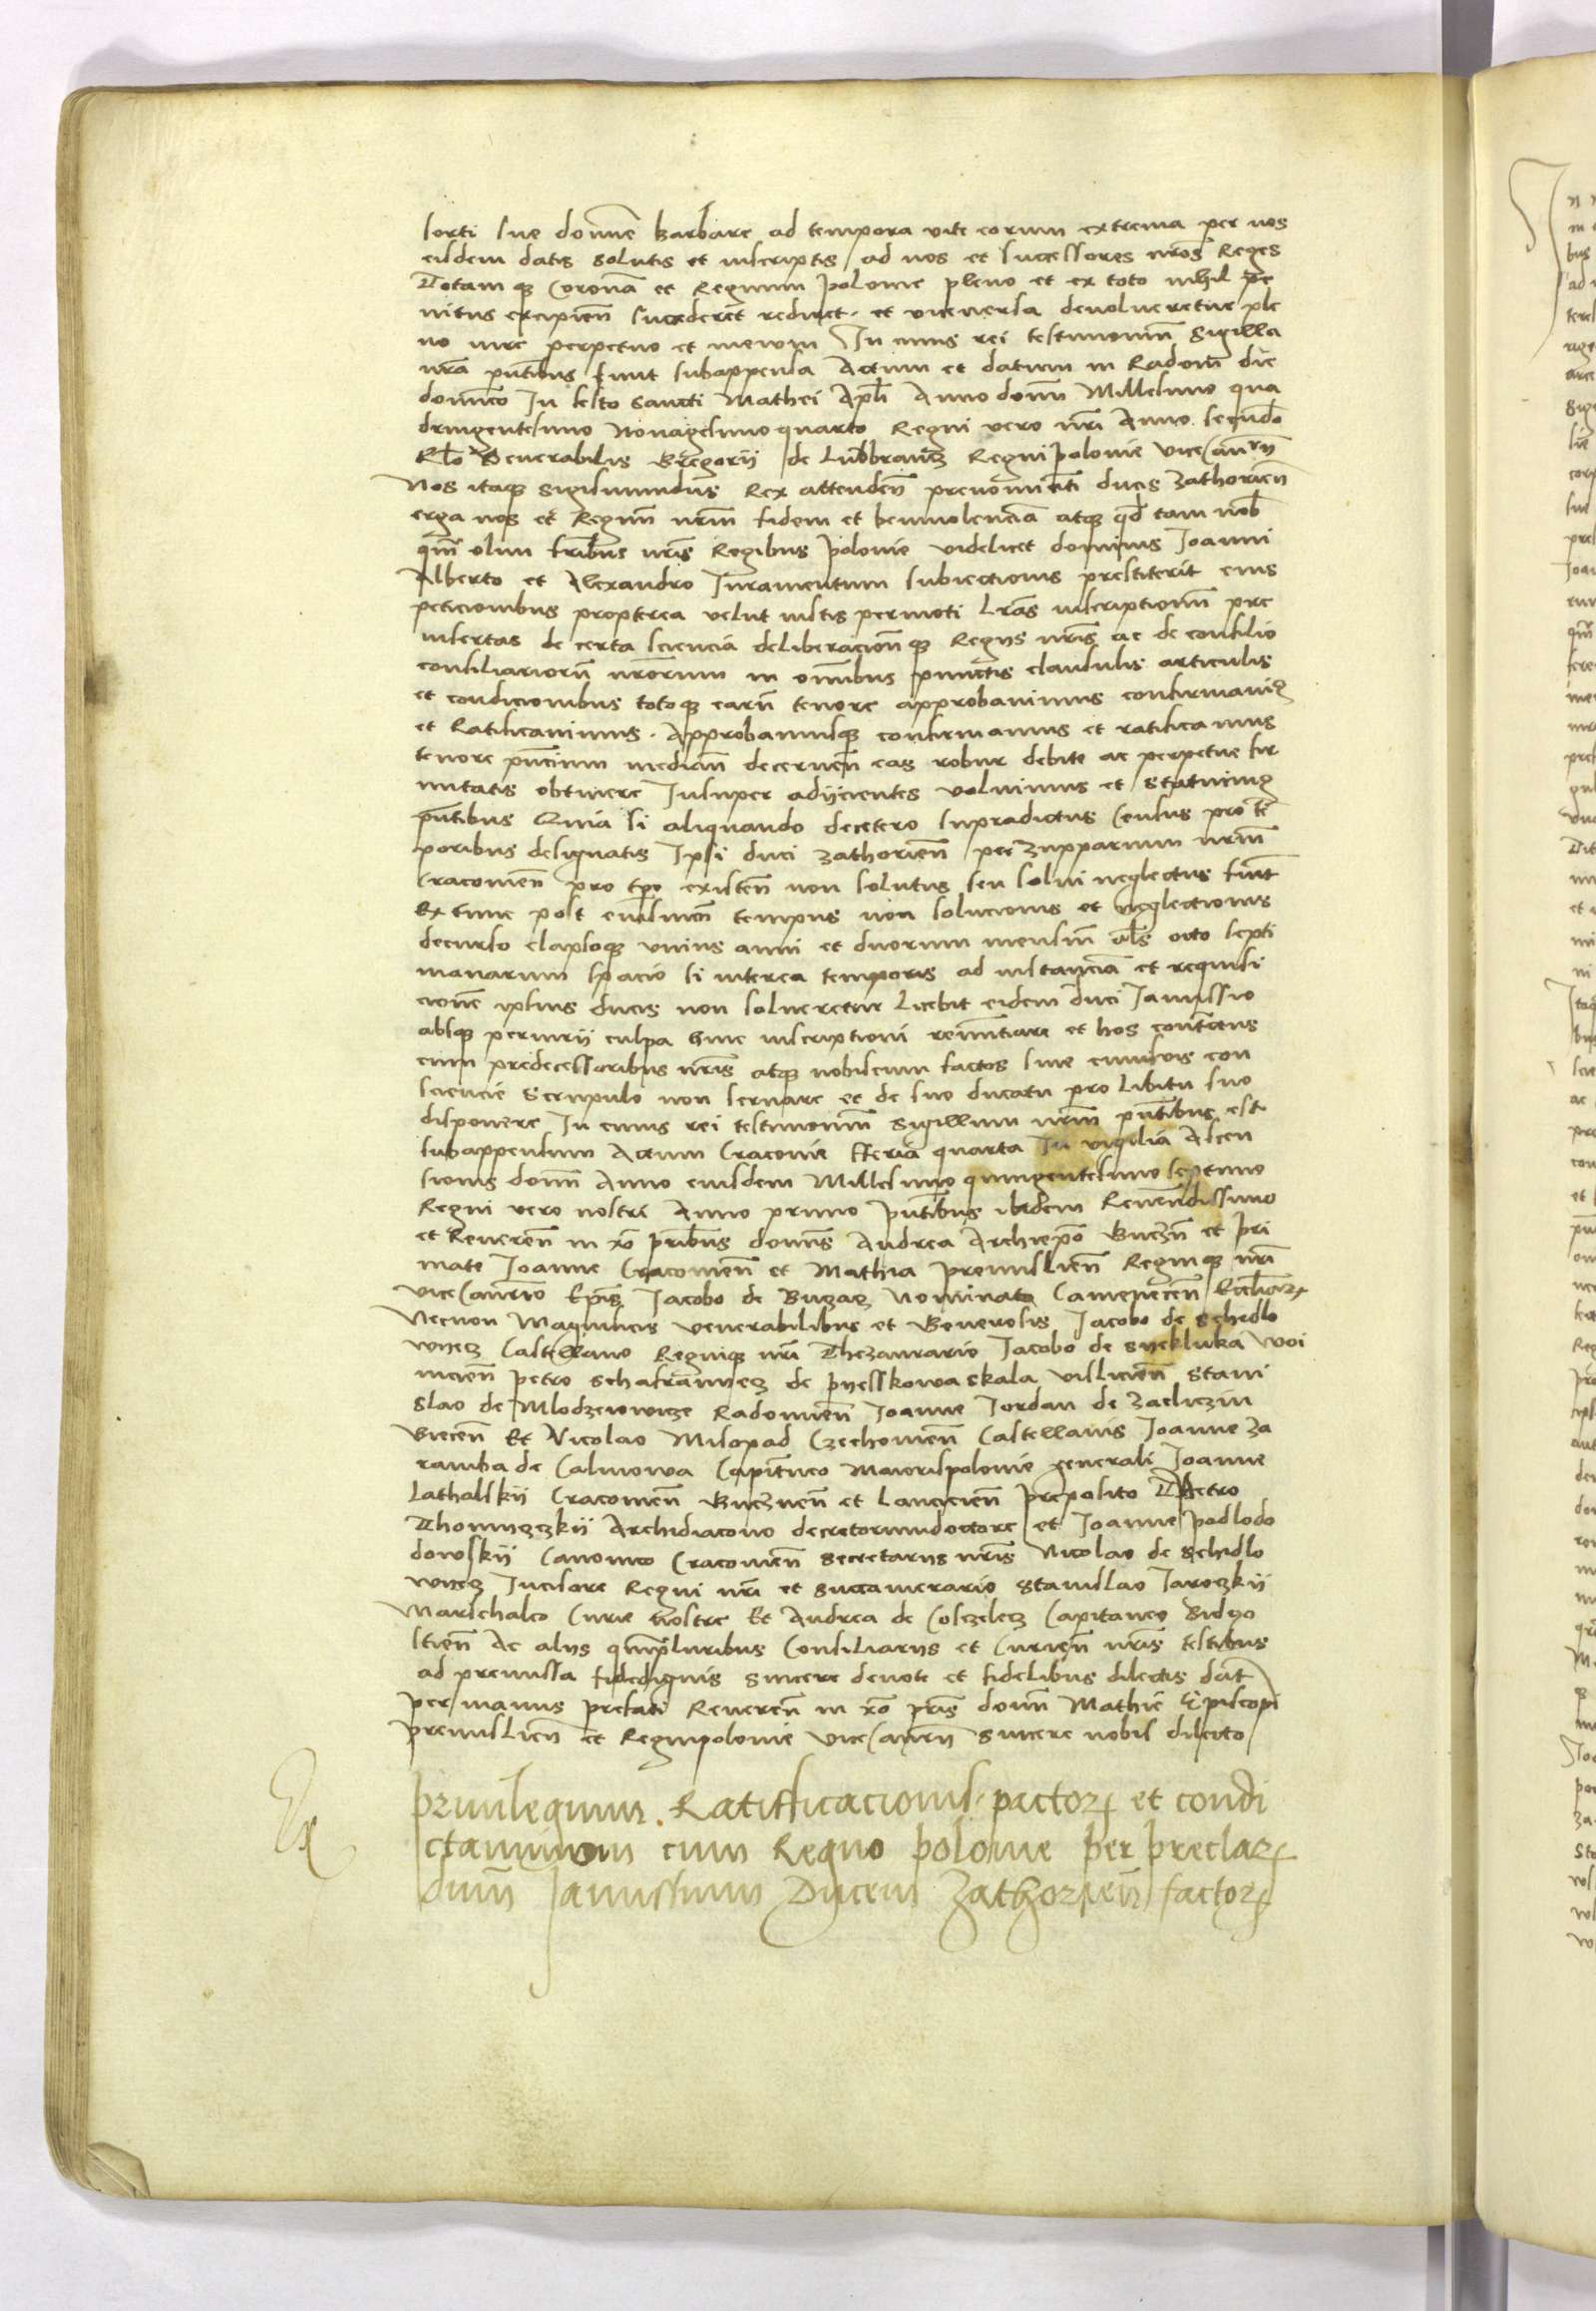 sorti sue domine Barbare ad tempora vite eorum extrema per nos
eisdem datis solutis et inscriptis ad nos et successores nros Reges
Totamqz Coronã et Regnum polonie pleno et ex toto nihil pe
nitus excipien̄ succederet rediret et viceversa devolveretur ple
no iure perpetuo et mewm In cuius rei testimoniũ Sigilla
nrã pñtibus sunt subappensa Actum et datum in Radom die
dominico In festo Sancti Mathei Apli Anno domi Millesimo qua
dringentesimo Nonagesimo quarto Regni vero nri Anno secundo
Rlo Venerabilis Gregorij de Lubbrancz Regni polonie vicecancrij
Nos itaqz Sigismundus Rex attenden̄ prenominati ducis Zathorien̄
erga nos et Regnũ nrm̃ fidem et benivolenciã atqz qd tam nob
qm̃ olim fribus nris Regibus polonie videlicet dominis Joanni
Alberto et Alexandro Iuramentum subiectionis prestiterit eius
peticionibus propterea velut iustis permoti Lrãs inscriptionũ pre
insertas de certa sciencia deliberacionqz Regijs nris ac de consilio
consiliariorũ nrorum in om̃ibus punctis clausulis articulis
et condicionibus totoqz earũ tenore approbavimus confirmavimꝰ
et Ratificavimus . Approbamusqz confirmamus et ratificamus
tenore pñtium median̄ decernen̄ eas robur debite ac perpetue fir
mitatis obtinere Insuper adijcientes volumus et statuimus
pñtibus Quia si aliquando decetero supradictus Census pro tem
poribus designatis Ipsi duci Zathorien̄ per Zupparium nrm̃
Cracovien̄ pro tpe existen̄ non solutus seu solui neglectus fuit
Ex tunc post eiusmodi tempus non solucionis et neglectionis
decurso elapsoqz vnius anni et duorum mensiũ als octo septi
manarum spacio si interea temporis ad instanciã et requisi
cionẽ ipsius ducis non solueretur Licebit eidem duci Janussio
absqz periurij culpa huic inscriptioni renunciare et hos contractus
cum predecessoribus nris atqz nobiscum factos sine cuiusvis con
sciencie Scrupulo non servare et de suo ducatu pro Libitu suo
disponere In cuius rei testimoniũ Sigillum nrm̃ pñtibus est
subappensum Actum Cracovie fferia quarta In vigilia Ascen
sionis domi Anno eiusdem Millesimo quingentesimo septimo
Regni vero nostri Anno primo pñtibus ibidem Reverendissimo
et Reveren̄ in xpo pribus dominis Andrea Archiepo Gnezn̄ et pri
mate Joanne Cracovien̄ et Mathia premislien̄ Regniqz nri
vicecancrio Epis Jacobo de Buzacz Nominato Camenecen̄ Eccliarꝝ
Necnon Magnificis venerabilibus et Generosis Jacobo de Schidlo
vyecz Castellano Regniqz nri Thezaurario Jacobo de syekluka Woi
nicien̄ petro Schafranyecz de pyesskowa skala vislicien̄ Stani
slao de Mlodzeiowicze Radomien̄ Joanne Jordan de Zacliczin
Biecen̄ Et Nicolao Misopad Czechowien̄ Castellanis Joanne Za
ramba de Calinowa Capitaneo Maiorispolonie generali Joanne
Lathalskij Cracovien̄ Gneznen̄ et Lancicien̄ preposito Petro
Thomyczkij Archidiacono decretorumdoctore et Joanne podlodo
dowskij Canonico Cracovien̄ Secretarijs nris Nicolao de Schidlo
vyecz Incisore Regni nri et succamerario Stanislao Jaroczkij
Marschalco Curie nostre Et Andrea de Cosczelecz Capitaneo Bidgo
stien̄ Ac alijs qm̃pluribus Consiliarijs et Curien̄ nris testibus
ad premissa fidedignis sincere devote et fidelibus dilectis dat̃
per manus prefati Reveren̄ in xpo pris domi Mathie Episcopi
premislien̄ et Regnipolonie vicecancrij sincere nobis dilecto
privilegium . Ratifficacionis pactorꝝ et condi
ctaminum cum Regno polonie per preclarꝝ
dum̃ Janussium Ducem Zathorien̄ factorꝝ